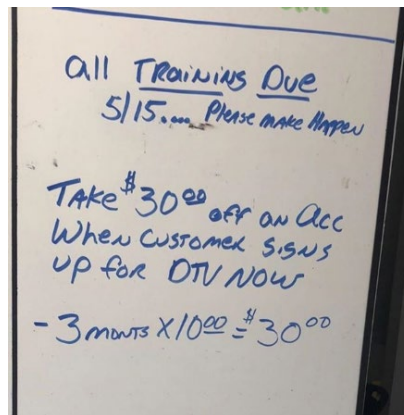 all Training Due
5/15.... Please make Happen
Take $30.00 off an acc
When Customer Signs
up for DTV NOW
- 3 monts X 10.00 = $30.00